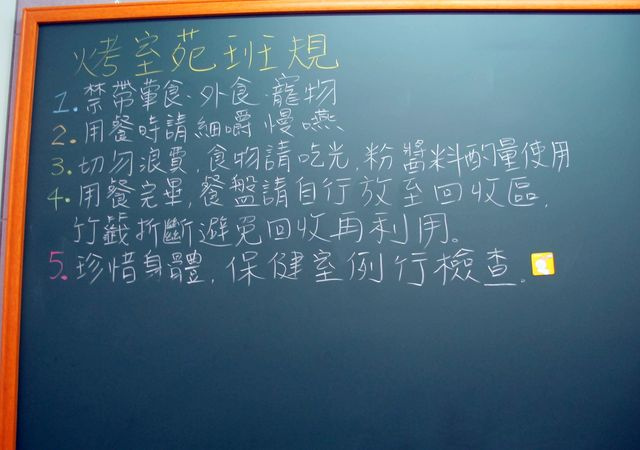 烤室苑班規
1. 禁帶葷食、外食、寵物
2. 用餐時請細嚼慢嚥
3. 切勿浪費，食物請吃光，粉醬料酌量使用
4. 用餐完畢，餐盤請自行放至回收區，
竹籤折斷避免回收再利用。
5. 珍惜身體，保健室例行檢查。